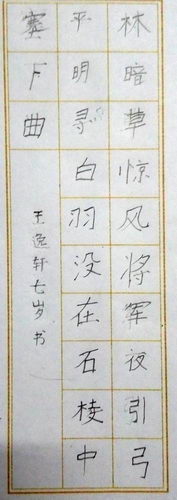 林暗草惊风将军夜引弓
平明寻白羽没在石棱中
塞下曲
王逸轩七岁书